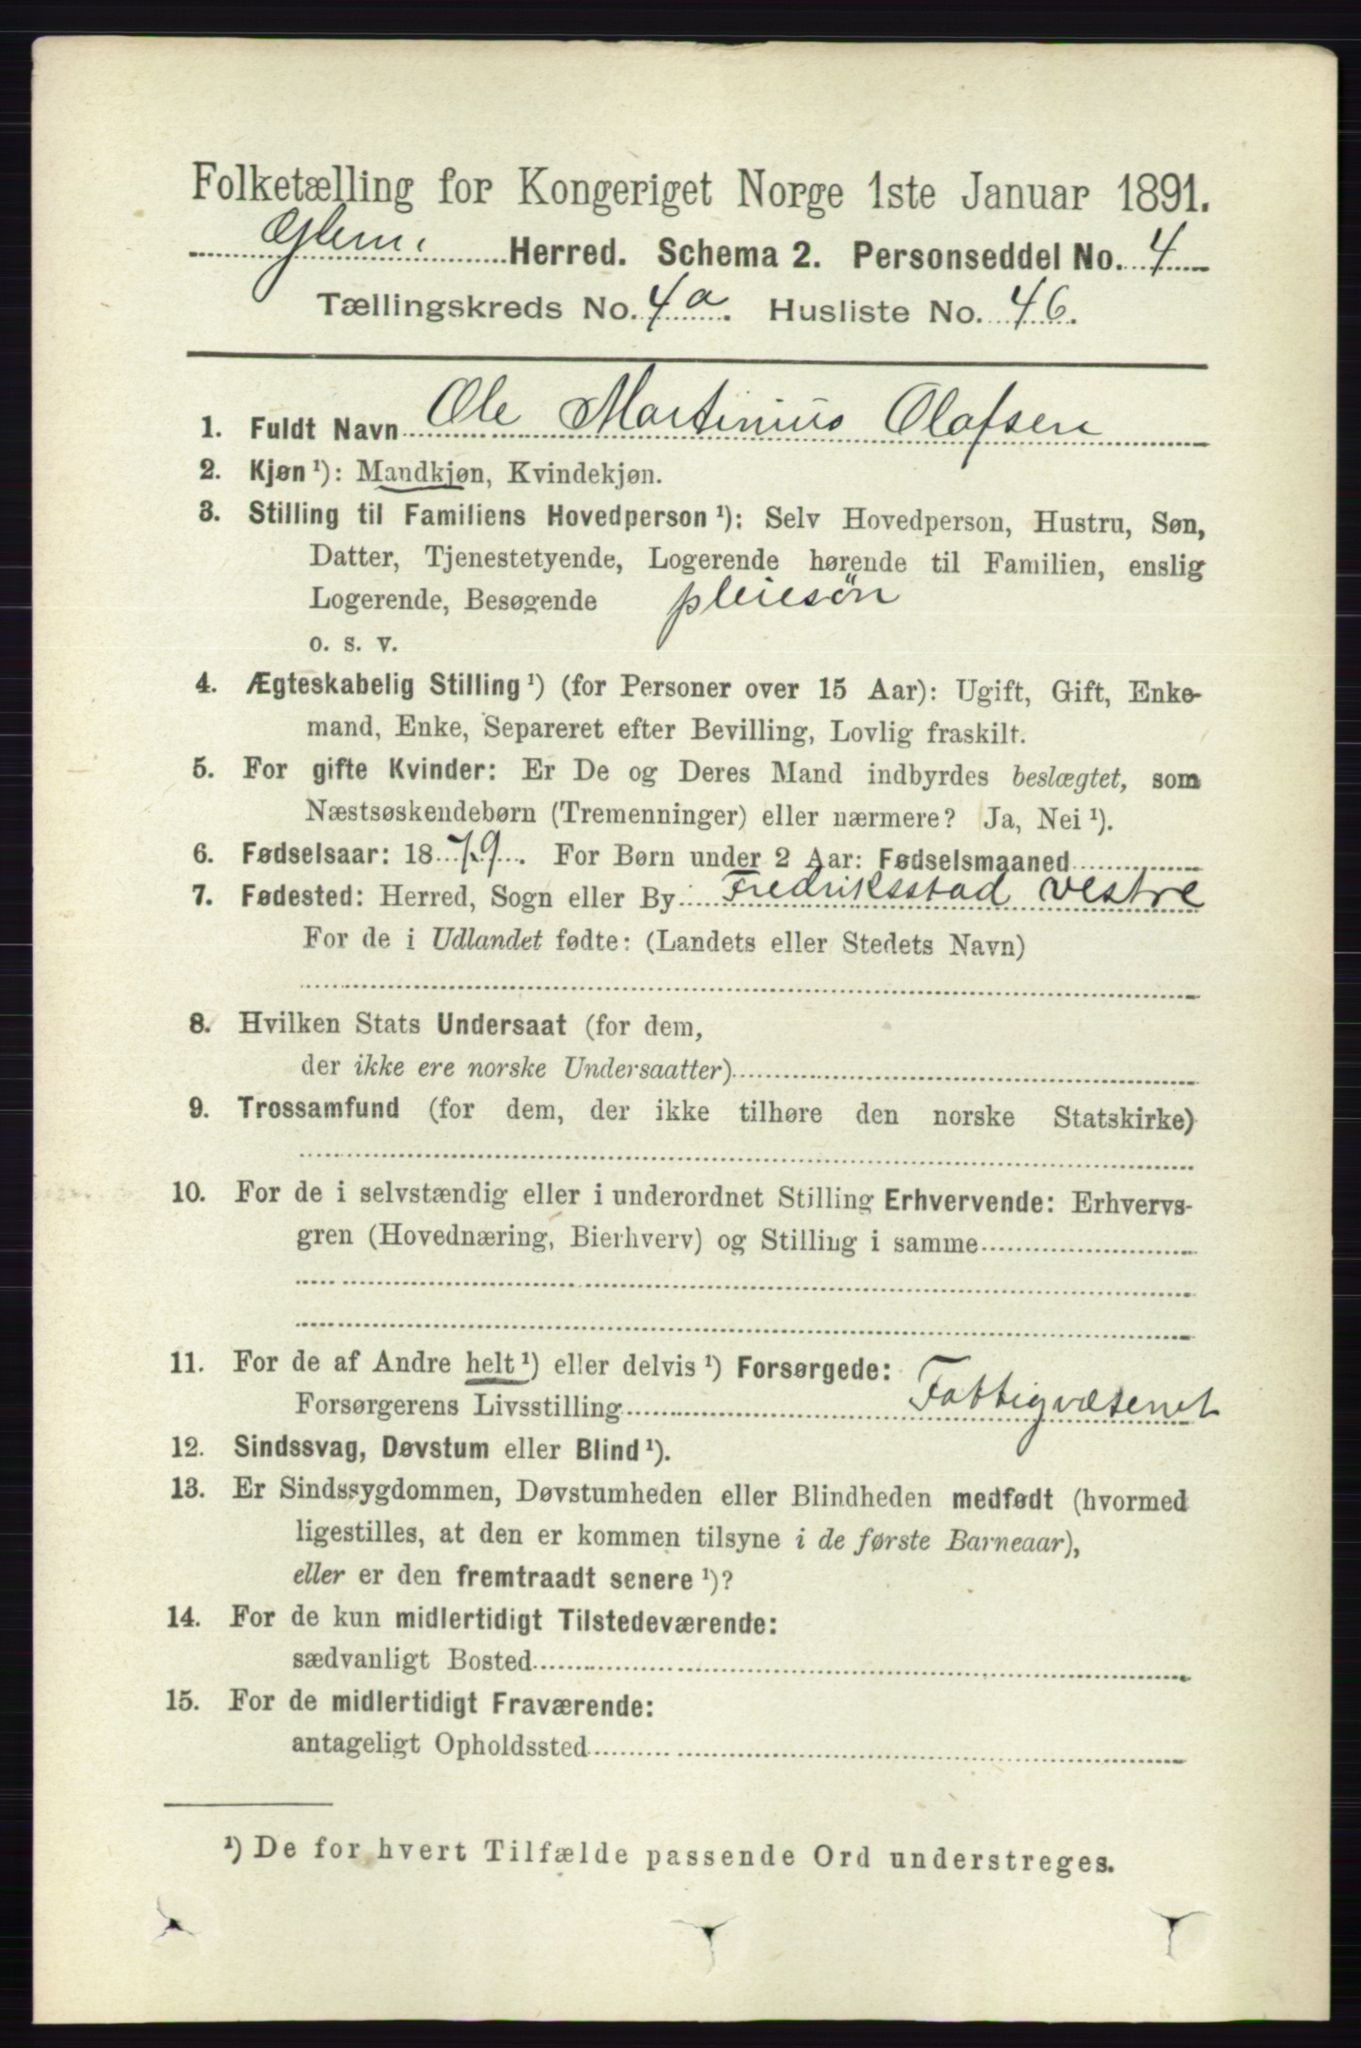 Folketælling for Kongeriget Norge 1ste Januar 1891.
Glem. Herred. Schema 2. Personseddel No. 4
Tællingskreds No. 4a. Husliste No. 46.
1. Fuldt Navn Ole Martinius Olafsen
2. Kjøn ¹): Mandkjøn, Kvindekjøn.
3. Stilling til Familiens Hovedperson ¹): Selv Hovedperson, Hustru, Søn,
Datter, Tjenestetyende, Logerende hørende til Familien, enslig
Logerende, Besøgende pleiesøn
o. s. v.
4. Ægteskabelig Stilling ¹) (for Personer over 15 Aar): Ugift, Gift, Enke-
mand, Enke, Separeret efter Bevilling, Lovlig fraskilt.
5. For gifte Kvinder: Er De og Deres Mand indbyrdes beslægtet, som
Næstsøskendebørn (Tremenninger) eller nærmere? Ja, Nei ¹).
6. Fødselsaar: 1879. For Børn under 2 Aar: Fødselsmaaned
7. Fødested: Herred, Sogn eller By Fredriksstad vestre
For de i Udlandet fødte: (Landets eller Stedets Navn)
8. Hvilken Stats Undersaat (for dem,
der ikke ere norske Undersaatter)
9. Trossamfund (for dem, der ikke tilhøre den norske Statskirke)
10. For de i selvstændig eller i underordnet Stilling Erhvervende: Erhvervs-
gren (Hovednæring, Bierhverv) og Stilling i samme
11. For de af Andre helt ¹) eller delvis ¹) Forsørgede:
Forsørgerens Livsstilling Fattigvæsenet
12. Sindssvag, Døvstum eller Blind ¹).
13. Er Sindssygdommen, Døvstumheden eller Blindheden medfødt (hvormed
ligestilles, at den er kommen tilsyne i de første Barneaar),
eller er den fremtraadt senere ¹)?
14. For de kun midlertidigt Tilstedeværende:
sædvanligt Bosted
15. For de midlertidigt Fraværende:
antageligt Opholdssted
¹) De for hvert Tilfælde passende Ord understreges.